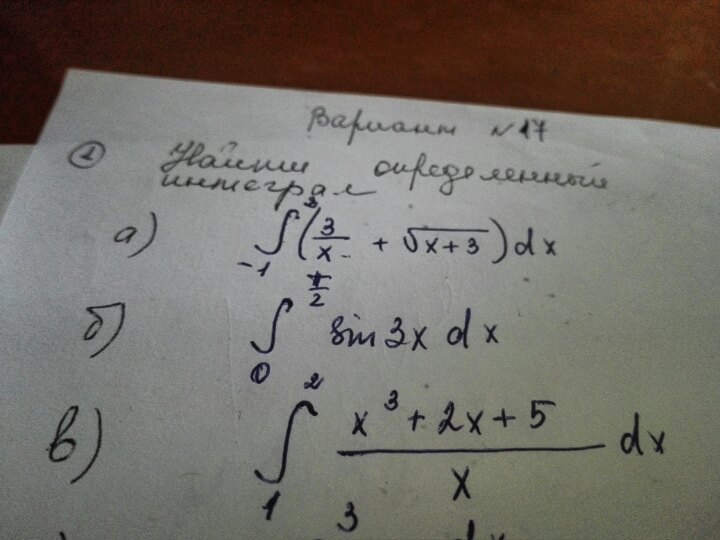 Вариант №17
① Найти определенный
интеграл
а) ∫₋₁² (3/x + √(x+3)) dx
б) ∫₀^(π/2) sin 3x dx
в) ∫₁² (x³ + 2x + 5)/x dx
3 dx